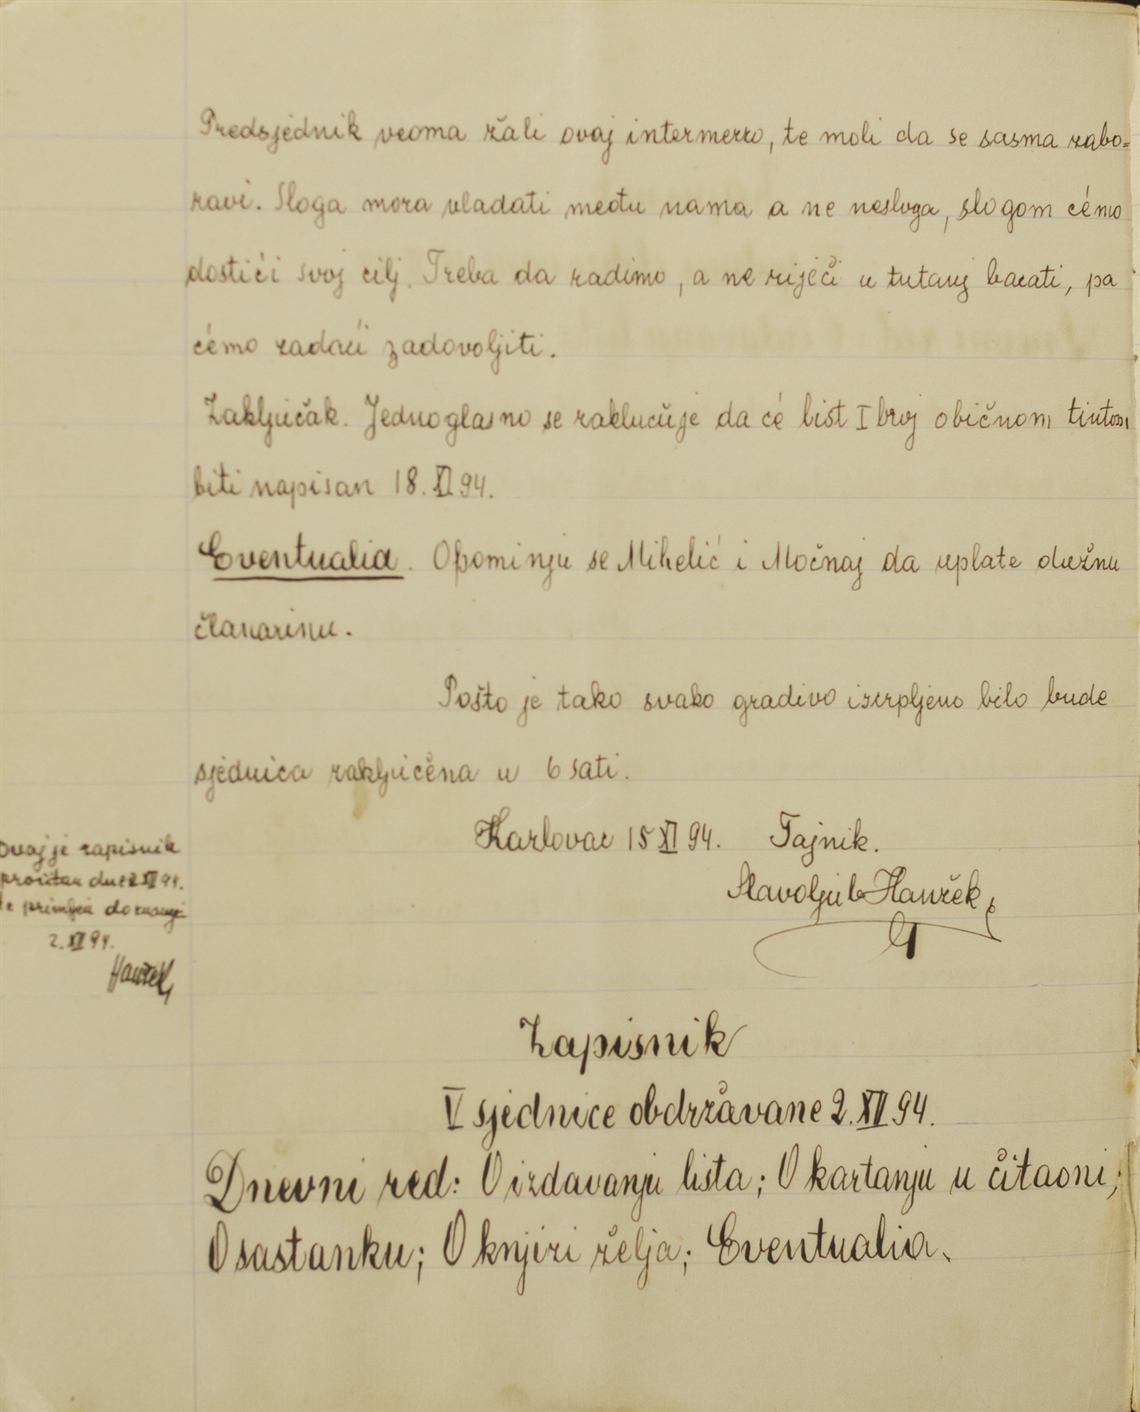 Predsjednik veoma žali ovaj intermezzo, te moli da se sasma zabo=
ravi. Sloga mora vladati među nama a ne nesloga, slogom ćemo
dostići svoj cilj. Treba da radimo, a ne riječi u tutanj bacati, pa
ćemo zadaći zadovoljiti.
Zaključak. Jednoglasno se zaklučuje da će list I broj običnom tintom
biti napisan 18. XI 94.
Eventualia. Opominju se Mihelić i Močnaj da uplate dužnu
članarinu.
Pošto je tako svako gradivo iscrpljeno bilo bude
sjednica zaključena u 6 sati.
Karlovac 15 XI 94. Tajnik.
Slavoljub Hanžek
Ovaj je zapisnik
pročitan dne 2 XII 94.
te primljen do znanja
2. XII 94.
Hanžek
Zapisnik
V sjednice obdržavane 2. XII 94.
Dnevni red: O izdavanju lista; O kartanju u čitaoni;
O sastanku; O knjizi želja; Eventualia.